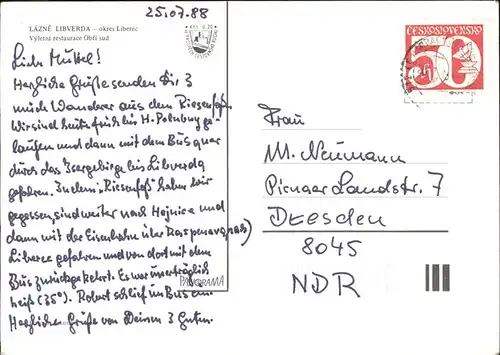 25.07.88
LÁZNĚ LIBVERDA – okres Liberec
Výletní restaurace Obří sud
Liebe Muttel!
Herzliche Grüße senden Dir 3
müde Wanderer aus dem Riesenfaß.
Wir sind heute früh bis H. Polubny ge-
laufen und dann mit dem Bus quer
durch das Isergebirge bis Libverda
gefahren. In dem „Riesenfaß" haben wir
gegessen, sind weiter nach Hejnice und
dann mit der Eisenbahn über Raspenava (nach)
Liberec gefahren und von dort mit dem
Bus zurückgekehrt. Es war unerträglich
heiß (35°). Robert schlief im Bus ein.
Herzliche Grüße von Deinen 3 Guten.
PANORAMA
ČESKOSLOVENSKO
50
Frau
M. Neumann
Pirnaer Landstr. 7
Dresden
8045
NDR